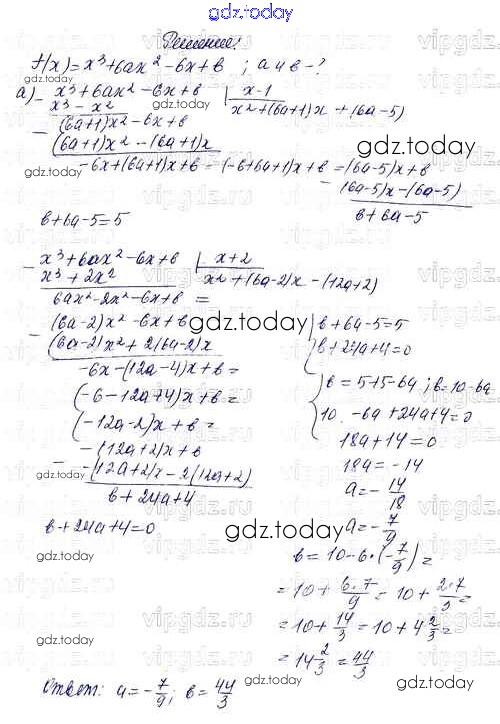 gdz.today
Решение:
f(x)=x³+6ax²-6x+b ; a и b-?
gdz.today
а) - x³+6ax²-6x+b | x-1
x³-x² x²+(6a+1)x+(6a-5)
- (6a+1)x²-6x+b
(6a+1)x²-(6a+1)x
gdz.today
-6x+(6a+1)x+b=(-6+6a+1)x+b=(6a-5)x+b
- (6a-5)x-(6a-5)
b+6a-5
b+6a-5=5
- x³+6ax²-6x+b | x+2
x³+2x² x²+(6a-2)x-(12a+2)
6ax²-2x²-6x+b=
- (6a-2)x²-6x+b
gdz.today
(6a-2)x²+2(6a-2)x
-6x-(12a-4)x+b=
(-6-12a+4)x+b=
(-12a-2)x+b=
-(12a+2)x+b
- -(12a+2)x-2(12a+2)
b+24a+4
b+24a+4=0
b+6a-5=5
b+24a+4=0
b=5+5-6a; b=10-6a
10-6a+24a+4=0
18a+14=0
18a=-14
a=-14/18
gdz.today
a=-7/9
gdz.today
b=10-6·(-7/9)=
=10+6·7/9=10+2·7/3=
=10+14/3=10+4 2/3=
gdz.today
gdz.today
=14 2/3=44/3
Ответ: a=-7/9; b=44/3